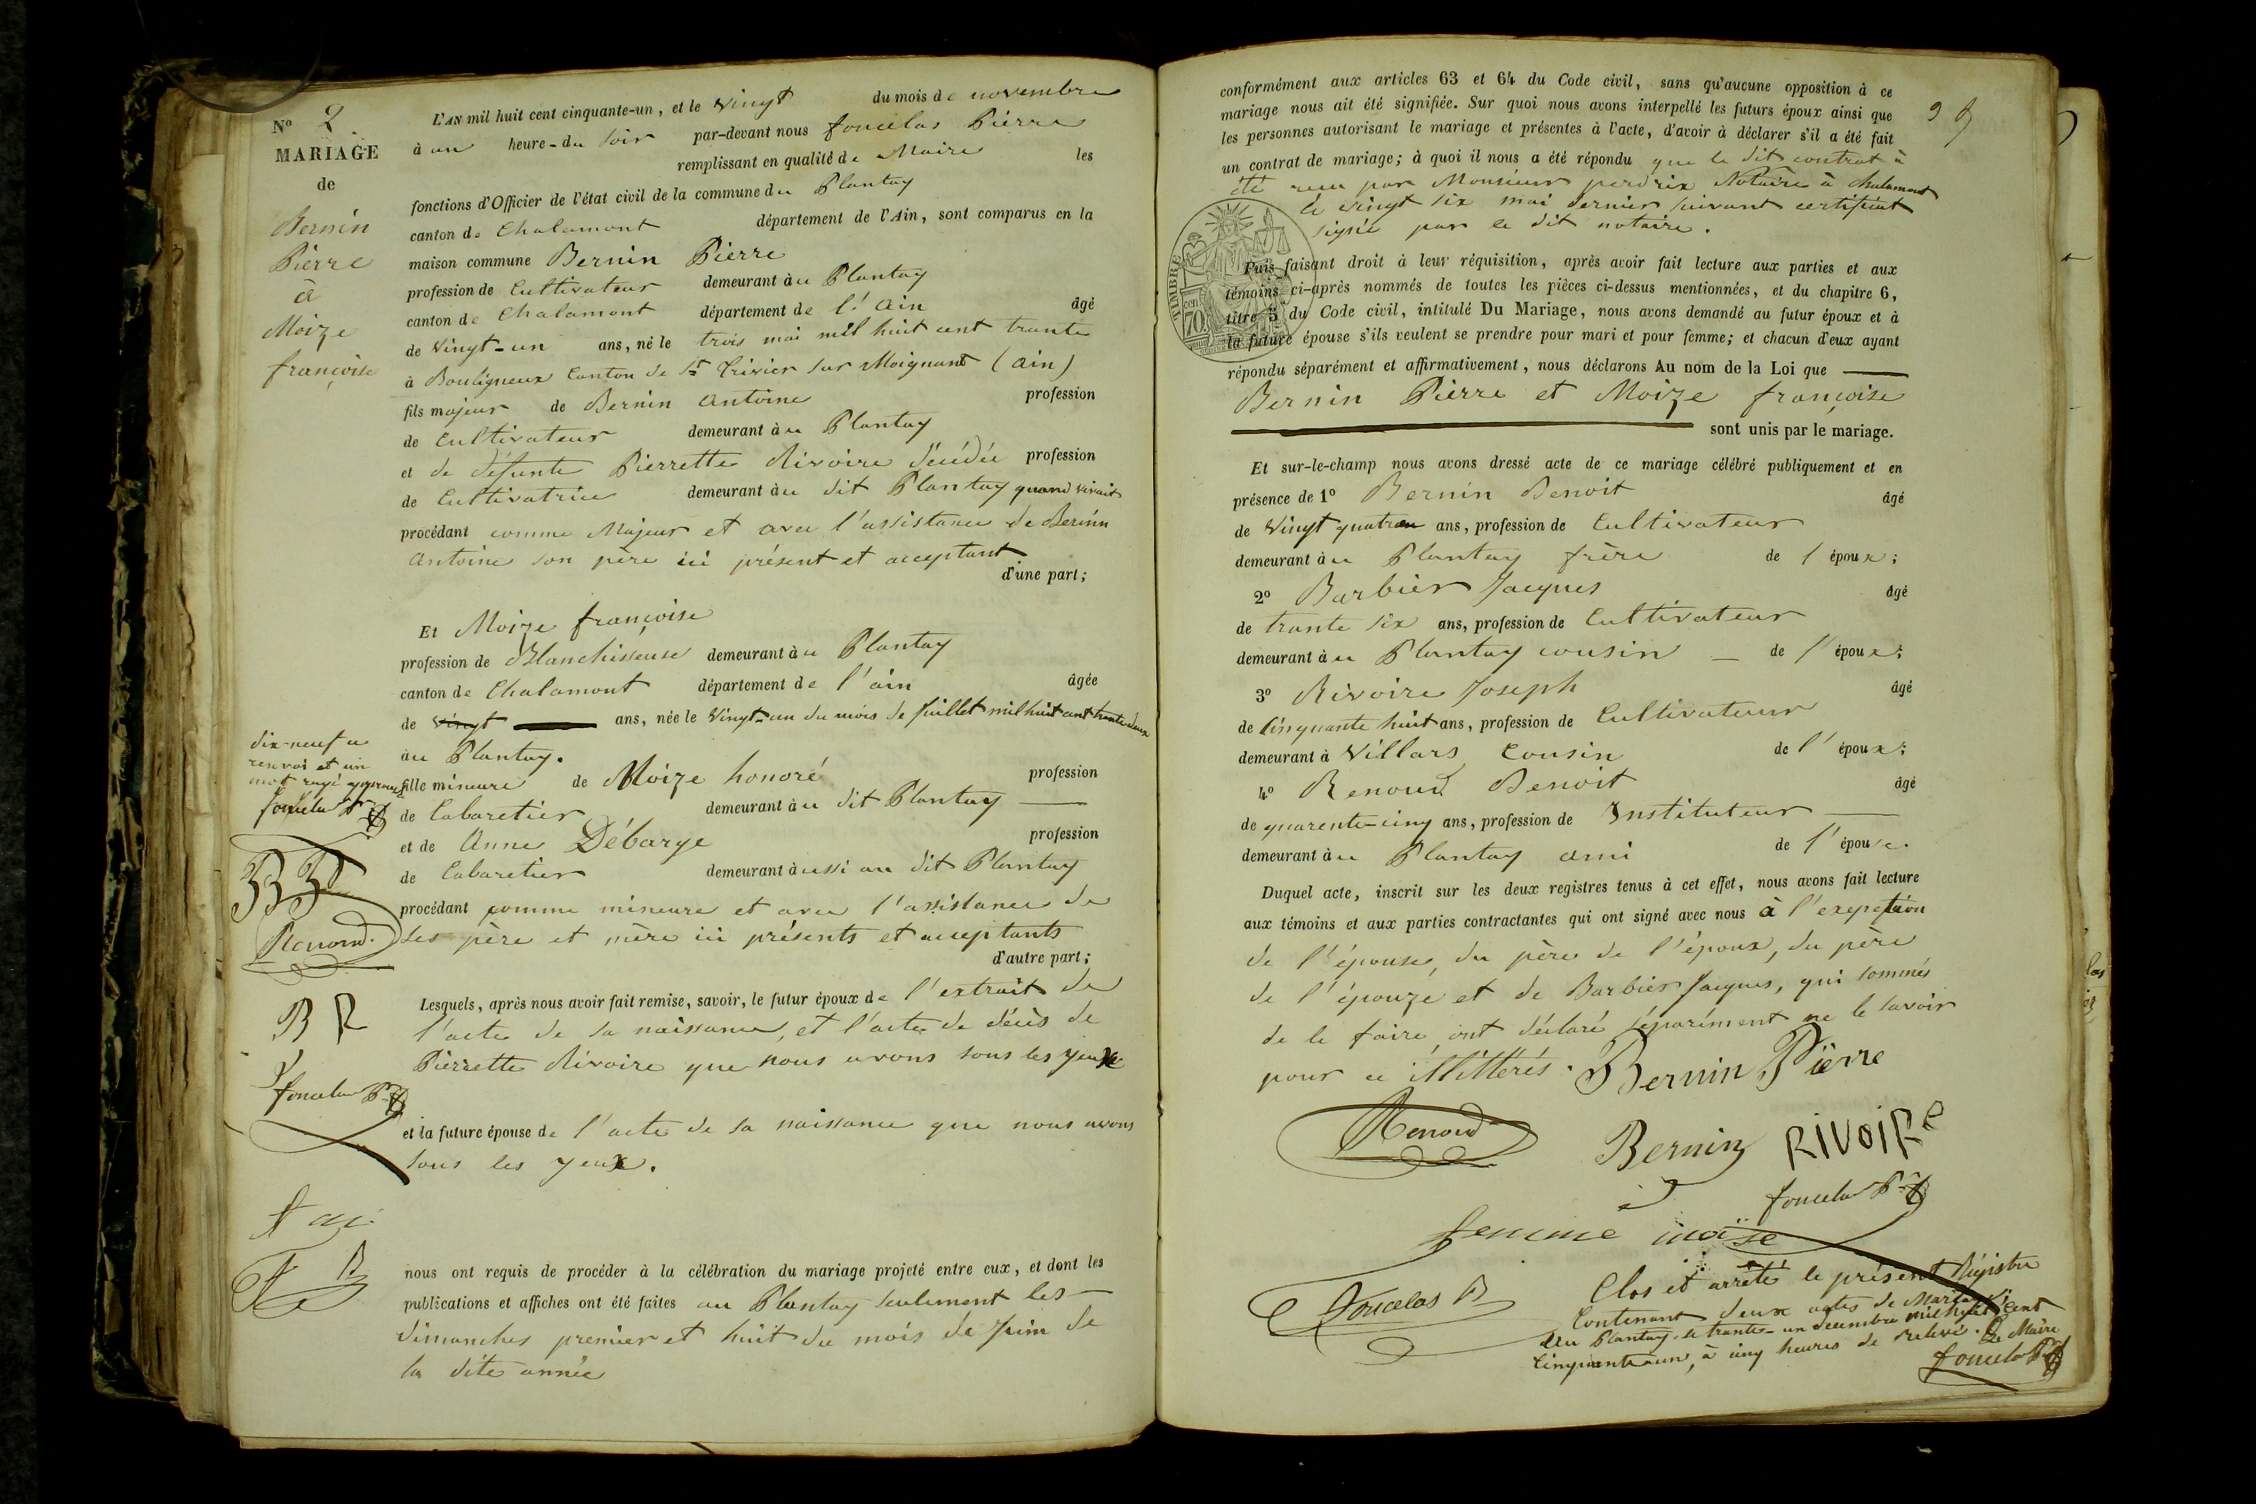 N° 2
MARIAGE
de
Bernin
Pierre
à
Moize
françoise
L'AN mil huit cent cinquante-un, et le vingt du mois de novembre
à un heure-du soir par-devant nous foncelas Pierre
remplissant en qualité de Maire les
fonctions d'Officier de l'état civil de la commune du Plantay
canton de Chalamont département de l'Ain, sont comparus en la
maison commune Bernin Pierre
profession de Cultivateur demeurant àu Plantay
canton de Chalamont département de l'ain âgé
de vingt-un ans, né le trois mai mil huit cent trante
à Bouligneux Canton de St Trivier sur Moignans (ain)
fils majeur de Bernin antoine profession
de Cultivateur demeurant àu Plantay
et de défunte Pierrette Rivoire décédée profession
de Cultivatrice demeurant àu dit Plantay quand vivait
procédant comme Majeur et avec l'assistance de Bernin
antoine son père ici présent et acceptant
d'une part;
Et Moize françoise
profession de Blanchisseuse demeurant àu Plantay
canton de Chalamont département de l'ain âgée
de vingt ans, née le vingt-un du mois de Juillet mil huit cent trante deux
au Plantay.
dix-neuf u
renvoi et un
mot rayé approuvé
foncelas P
fille mineure de Moize honoré profession
de Cabaretier demeurant àu dit Plantay
et de Anne Débarge profession
de Cabaretier demeurant àussi au dit Plantay
procédant comme mineure et avec l'assistance de
ses père et mère ici présents et acceptants
d'autre part;
BP
Renoud
BR
foncelas P
Lesquels, après nous avoir fait remise, savoir, le futur époux de l'extrait de
l'acte de sa naissance, et l'acte de décès de
Pierrette Rivoire que nous avons sous les yeux
et la future épouse de l'acte de sa naissance que nous avons
sous les yeux.
nous ont requis de procéder à la célébration du mariage projeté entre eux, et dont les
publications et affiches ont été faites au Plantay seulement les
dimanches premier et huit du mois de Juin de
la dite année
conformément aux articles 63 et 64 du Code civil, sans qu'aucune opposition à ce
mariage nous ait été signifiée. Sur quoi nous avons interpellé les futurs époux ainsi que
les personnes autorisant le mariage et présentes à l'acte, d'avoir à déclarer s'il a été fait
un contrat de mariage; à quoi il nous a été répondu que le dit contrat à
été reçu par Monsieur perdrix Notaire à chalamont
le vingt six mai dernier suivant certificat
signé par le dit notaire.
TIMBRE
70
Puis faisant droit à leur réquisition, après avoir fait lecture aux parties et aux
témoins ci-après nommés de toutes les pièces ci-dessus mentionnées, et du chapitre 6,
titre 5 du Code civil, intitulé Du Mariage, nous avons demandé au futur époux et à
la future épouse s'ils veulent se prendre pour mari et pour femme; et chacun d'eux ayant
répondu séparément et affirmativement, nous déclarons Au nom de la Loi que
Bernin Pierre et Moize françoise
sont unis par le mariage.
Et sur-le-champ nous avons dressé acte de ce mariage célébré publiquement et en
présence de 1° Bernin Benoit âgé
de vingt quatre ans, profession de Cultivateur
demeurant àu Plantay frère de l'époux;
2° Barbier Jacques âgé
de trante six ans, profession de Cultivateur
demeurant àu Plantay cousin de l'époux;
3° Rivoire Joseph âgé
de Cinquante huit ans, profession de Cultivateur
demeurant à Villars Cousin de l'époux;
4° Renoud Benoit âgé
de quarente-cinq ans, profession de Instituteur
demeurant àu Plantay ami de l'épouse.
Duquel acte, inscrit sur les deux registres tenus à cet effet, nous avons fait lecture
aux témoins et aux parties contractantes qui ont signé avec nous à l'exeception
de l'épouse, du père de l'époux, du père
de l'épouze et de Barbier Jacques, qui sommés
de le faire, ont déclaré séparément ne le savoir
pour ce illittérés. Bernin Pierre
Renoud Bernin RIVOIRe
foncelas P
femme moïse
foncelas B
Clos et arrêté le présent Régistre
Contenant deux actes de Mariage
Au Plantay le trante-un décembre mil huit Cent
Cinquante un, à cinq heures de relevé. Le Maire
foncelas P